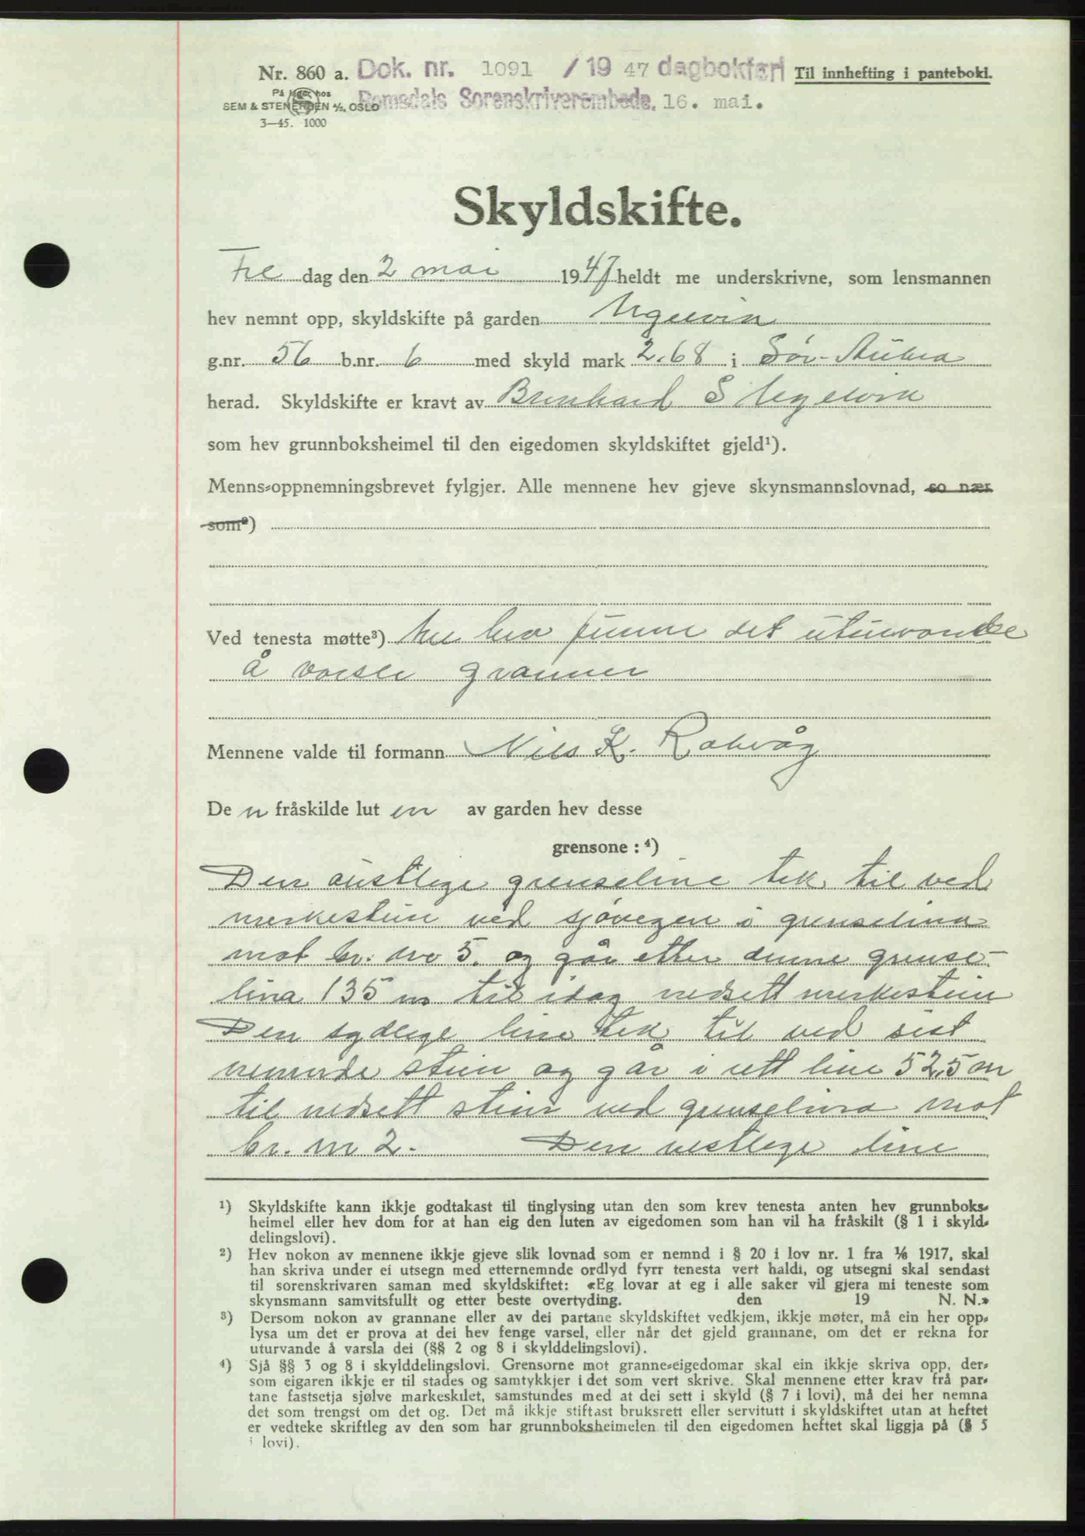 Nr. 860 a. Dok. nr. 1091 / 19 47 dagbokført Til innhefting i panteboki.
På hos
SEM & STENERSEN A/S, OSLO Romsdals Sorenskriverembede, 16. mai.
3—45. 1000
Skyldskifte.
Fre dag den 2 mai 1947 heldt me underskrivne, som lensmannen
hev nemnt opp, skyldskifte på garden
g.nr. 56 b.nr. 6 med skyld mark 2.68 i Sør-Aukra
herad. Skyldskifte er kravt av S
som hev grunnboksheimel til den eigedomen skyldskiftet gjeld¹).
Menns-oppnemningsbrevet fylgjer. Alle mennene hev gjeve skynsmannslovnad, so nær
som²)
Ved tenesta møtte³) det uturvande
å varsle granner
Mennene valde til formann Nils K. Rakvåg
De n fråskilde lut en av garden hev desse
grensone : ⁴)
Den austlege grenseline tek til ved
merkestein ved sjøvegen i grenselina
mot br. no 5. og går etter denne grense-
lina 135 m til idag nedsett merkestein
Den sydlege line tek til ved sist
nemnde stein og går i rett line 52,5 m
til nedsett stein ved grenselina mot
br. nr 2. Den vestlege line
¹) Skyldskifte kann ikkje godtakast til tinglysing utan den som krev tenesta anten hev grunnboks-
heimel eller hev dom for at han eig den luten av eigedomen som han vil ha fråskilt (§ 1 i skyld-
delingslovi).
²) Hev nokon av mennene ikkje gjeve slik lovnad som er nemnd i § 20 i lov nr. 1 fra 1/6 1917, skal
han skriva under ei utsegn med etternemnde ordlyd fyrr tenesta vert haldi, og utsegni skal sendast
til sorenskrivaren saman med skyldskiftet: «Eg lovar at eg i alle saker vil gjera mi teneste som
skynsmann samvitsfullt og etter beste overtyding. den 19 N. N.»
³) Dersom nokon av grannane eller av dei partane skyldskiftet vedkjem, ikkje møter, må ein her opp-
lysa um det er prova at dei hev fenge varsel, eller når det gjeld grannane, om det er rekna for
uturvande å varsla dei (§§ 2 og 8 i skylddelingslovi).
⁴) Sjå §§ 3 og 8 i skylddelingslovi. Grensorne mot granne-eigedomar skal ein ikkje skriva opp, der-
som eigaren ikkje er til stades og samtykkjer i det som vert skrive. Skal mennene etter krav frå par-
tane fastsetja sjølve merkeskilet, samstundes med at dei sett i skyld (§ 7 i lovi), må dei her nemna
det som trengst om det og. Det må ikkje stiftast bruksrett eller servitutt i skyldskiftet utan at heftet
er vedteke skriftleg av den som har grunnboksheimelen til den eigedomen heftet skal liggja på (§ 5
i lovi).